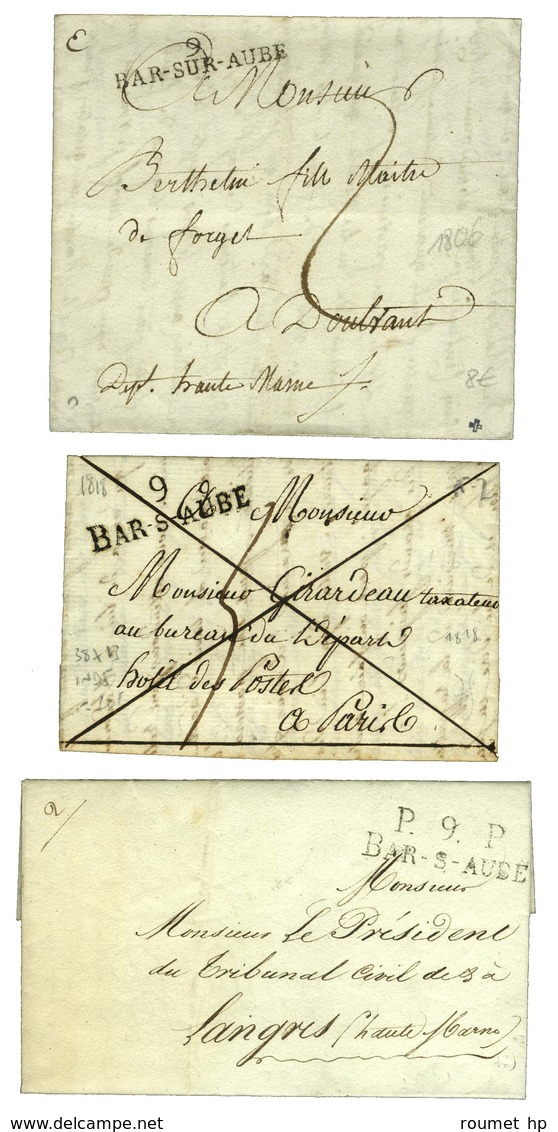 9
BAR-SUR-AUBE
A Monsieur
Berthelin fils Maitre
de forges
A Doulvant
Dept. haute Marne
1806
8€
1818
9
BAR-S-AUBE
A Monsieur
Monsieur Girardeau taxateur
au bureau du Départ
hotel des Postes
a Paris
1818
P. 9. P
BAR-S-AUBE
Monsieur
Monsieur Le Président
du Tribunal Civil de & à
Langres (haute Marne)
roumet hp